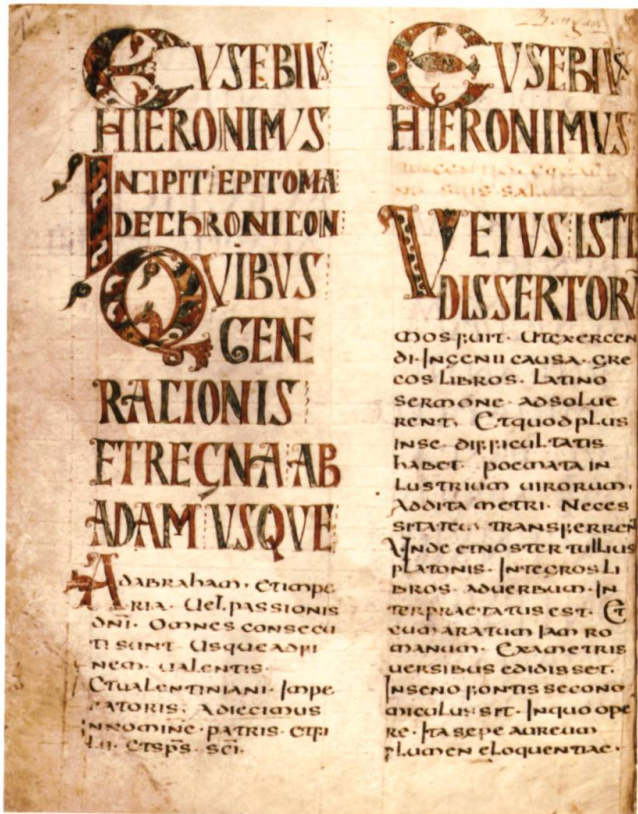 EUSEBIUS
HIERONIMUS
INCIPIT EPITOMA
DE CHRONICON
QUIBUS
GENE
RACIONIS
ET REGNA AB
ADAM USQUE
Adabraham. Etimpe
ria. Uel. passionis
dni. Omnes consecu
ti sunt Usque adfi
nem. ualentis.
Etualentiniani. Impe
ratoris. Adiecimus
innomine. patris. etfi
lii. Etsps. sci.
EUSEBIUS
HIERONIMUS
suis salutem
VETUS ISTE
DISSERTORU
mos fuit. Utexercen
di. Ingenii causa. gre
cos libros. Latino
sermone. absolue
rent. Etquodplus
inse. difficultatis
habet. poemata in
lustrium uirorum.
Addita metri. Neces
sitatem transferrent
Unde etnoster tullius
platonis. Integros li
bros. aduerbum. In
terpraetatus est. Et
cum aratum Iam ro
manum. Exametris
uersibus edidisset.
Inseno fontis secono
miculus. sit. Inquo ope
re. Ita sepe aureum
flumen eloquentiae.